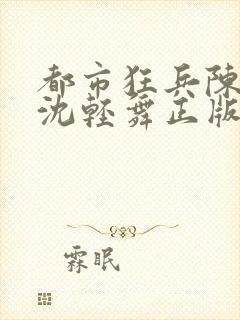 都市狂兵陳
沈輕舞正版
霖眠